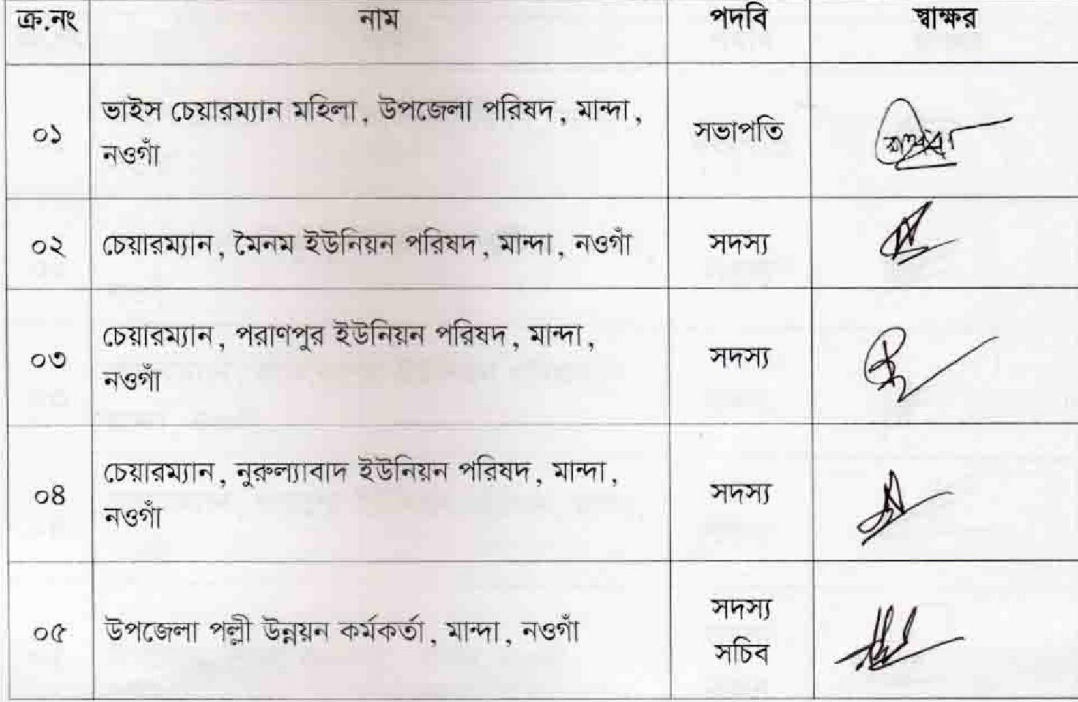 ক্র.নং নাম পদবি স্বাক্ষর
০১ ভাইস চেয়ারম্যান মহিলা, উপজেলা পরিষদ, মান্দা, নওগাঁ সভাপতি
০২ চেয়ারম্যান, মৈনম ইউনিয়ন পরিষদ, মান্দা, নওগাঁ সদস্য
০৩ চেয়ারম্যান, পরাণপুর ইউনিয়ন পরিষদ, মান্দা, নওগাঁ সদস্য
০৪ চেয়ারম্যান, নুরুল্যাবাদ ইউনিয়ন পরিষদ, মান্দা, নওগাঁ সদস্য
০৫ উপজেলা পল্লী উন্নয়ন কর্মকর্তা, মান্দা, নওগাঁ সদস্য সচিব